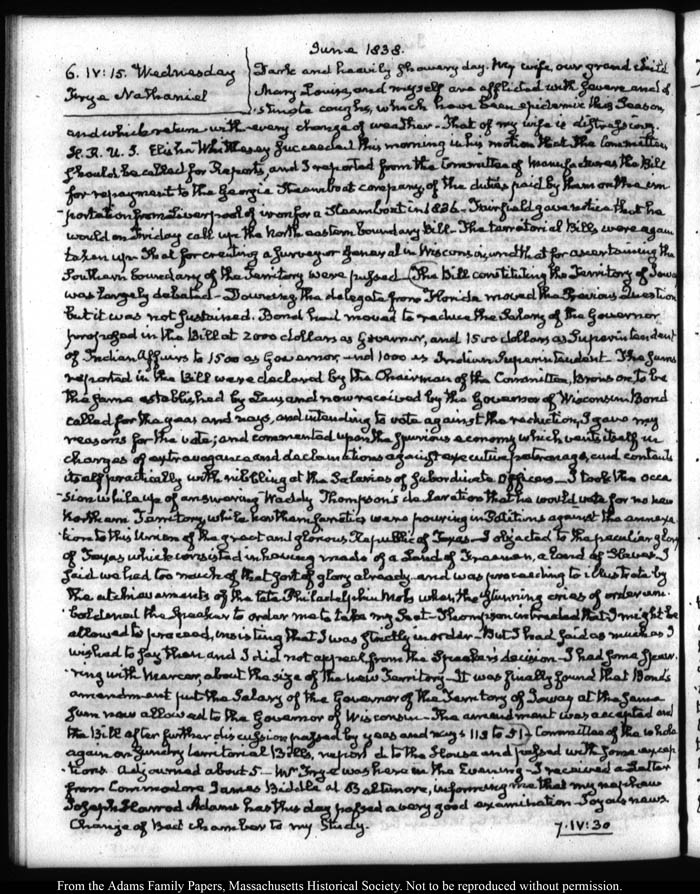 June 1838.
6. IV:15. Wednesday
Frye Nathaniel
Dark and heavily showery day. My wife, our grand child
Mary Louisa, and myself are afflicted with severe and ob
stinate coughs, which have been epidemic this Season,
and which return with every change of weather - That of my wife is distressing.
H. R. U. S. Elisha Whittlesey succeeded this morning in his motion that the Committees
should be called for Reports, and I reported from the Committee of Manufactures the Bill
for repayment to the Georgia Steamboat company, of the duties paid by them on the im
-portation from Liverpool of iron for a Steamboat in 1836 - Fairfield gave notice that he
would on Friday call up the North eastern boundary Bill - The territorial Bills were again
taken up. That for creating a Surveyor General in Wisconsin, and that for ascertaining the
Southern boundary of the Territory were passed. The Bill constituting the Territory of Ioway
was largely debated - Downing the delegate from Florida moved the Previous Question
but it was not sustained. Bond had moved to reduce the Salary of the Governor
proposed in the Bill at 2000 dollars as Governor, and 1500 dollars as Superintendent
of Indian Affairs to 1500 as Governor, and 1000 as Indian Superintendent - The sums
reported in the Bill were declared by the Chairman of the Committee, Bronson, to be
the same established by Law, and now received by the Governor of Wisconsin. Bond
called for the yeas and nays, and intending to vote against the reduction, I gave my
reasons for the vote; and commented upon the spurious economy which vents itself in
charges of extravagance and declamations against executive patronage, and contents
itself practically with nibbling at the Salaries of Subordinate Officers - I took the occa
-sion while up of answering Waddy Thompson's declaration that he would vote for no new
Northern Territory, while Northern fanatics were pouring in Petitions against the annexa
-tion to this Union of the great and glorious Republic of Texas - I objected to the peculiar glory
of Texas which consisted in having made of a Land of Freemen, a Land of Slaves. I
said we had too much of that sort of glory already - and was proceeding to illustrate by
the atchievements of the late Philadelphia Mob, when the stunning cries of order em
-boldened the Speaker to order me to take my Seat - Thompson intreated that I might be
allowed to proceed, insisting that I was strictly in order - But I had said as much as I
wished to say then and I did not appeal from the Speaker's decision - I had some spar
-ring with Mercer, about the size of the new Territory - It was finally found that Bond's
amendment put the Salary of the Governor of the Territory of Ioway at the same
sum now allowed to the Governor of Wisconsin - The amendment was accepted and
the Bill after further discussion passed by yeas and nays 118 to 51 - Committee of the whole
again on sundry territorial Bills, reported to the House and passed with some excep
-tions. Adjourned about 5 - Mr Frye was here in the Evening - I received a Letter
from Commodore James Biddle at Baltimore, informing me that my nephew
Joseph Harrod Adams has this day passed a very good examination - Joyous news.
Change of Bed chamber to my Study.
7.IV:30
From the Adams Family Papers, Massachusetts Historical Society. Not to be reproduced without permission.